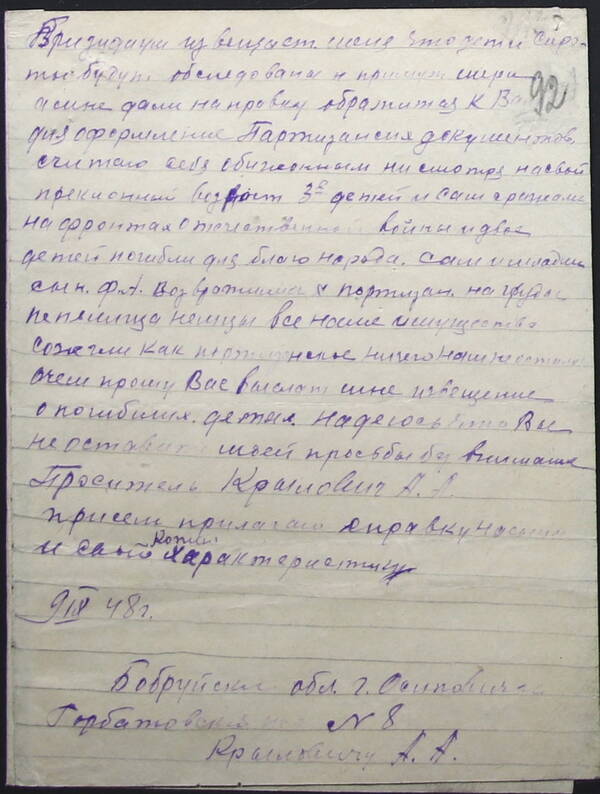 Призидиум известил меня что дети сиро-
ты будут обследованы и примут меры
а мне дали направку обратится к Вам
92
для оформление Партизанския документов,
считаю себя обиженным нисмотря на свой
преклонный возраст 3е детей и сам сражали
на фронтах отечественной войны и двое
детей погибли для благо народа. Сам и младший
сын. Ф.А. возвратились с партизан. на груды
пепелища немцы все наше имущество
сожгли как партизанское ничего нам не остал
очем прошу Вас выслат мне извещение
о погибших. детях. надеюсь что Вы
не оставите моей просьбы без внимание
Проситель Крылович А. А.
присем прилагаю справку на сына
и свой копии характеристику
9 IX 48 г.
Бобруйская обл. г. Осиповичи
Горбатовская № 8
Крыловичу А. А.